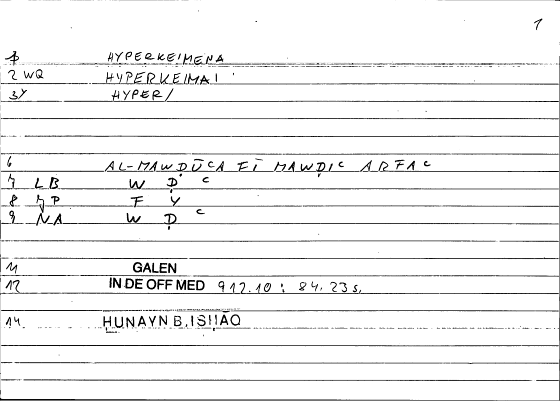 1
1 HYPERKEIMENA
2 WQ HYPERKEIMAI
3Y HYPER/
6 AL-MAWḌŪCA FĪ MAWḌIC ARFAC
7 LB W Ḍ C
8 JP F Y
9 NA W Ḍ C
11 GALEN
12 IN DE OFF MED 912.10 : 84.23s.
14 ḤUNAYN B.ISḤĀQ